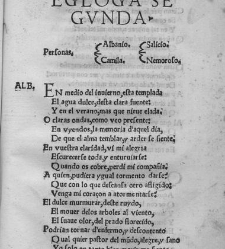 EGLOGA SE
GVNDA.
Albanio. Salicio.
Personas,
Camila. Nemoroso.
ALB.
EN medio del inuierno, esta templada
El agua dulce, desta clara fuente:
Y en el verano, mas que nieue elada.
O claras ondas, como veo presente:
En viendos, la memoria d'aquel dia,
De que el alma temblar, y arder se siente.
En vuestra claridad, vi mi alegria
Escurecerse toda, y enturuiarse
Quando os cobre, perdi mi compañia.
A quien pudiera ygual tormento darse?
Que con lo que descansa otro afligido:
Venga mi coraçon a atormentarse?
El dulce murmurar, deste ruydo,
El mouer delos arboles al viento,
El suaue olor, del prado florecido,
Podrian tornar d'enfermo, y descontento
Qual quier pastor del mūdo, alegre, y sano